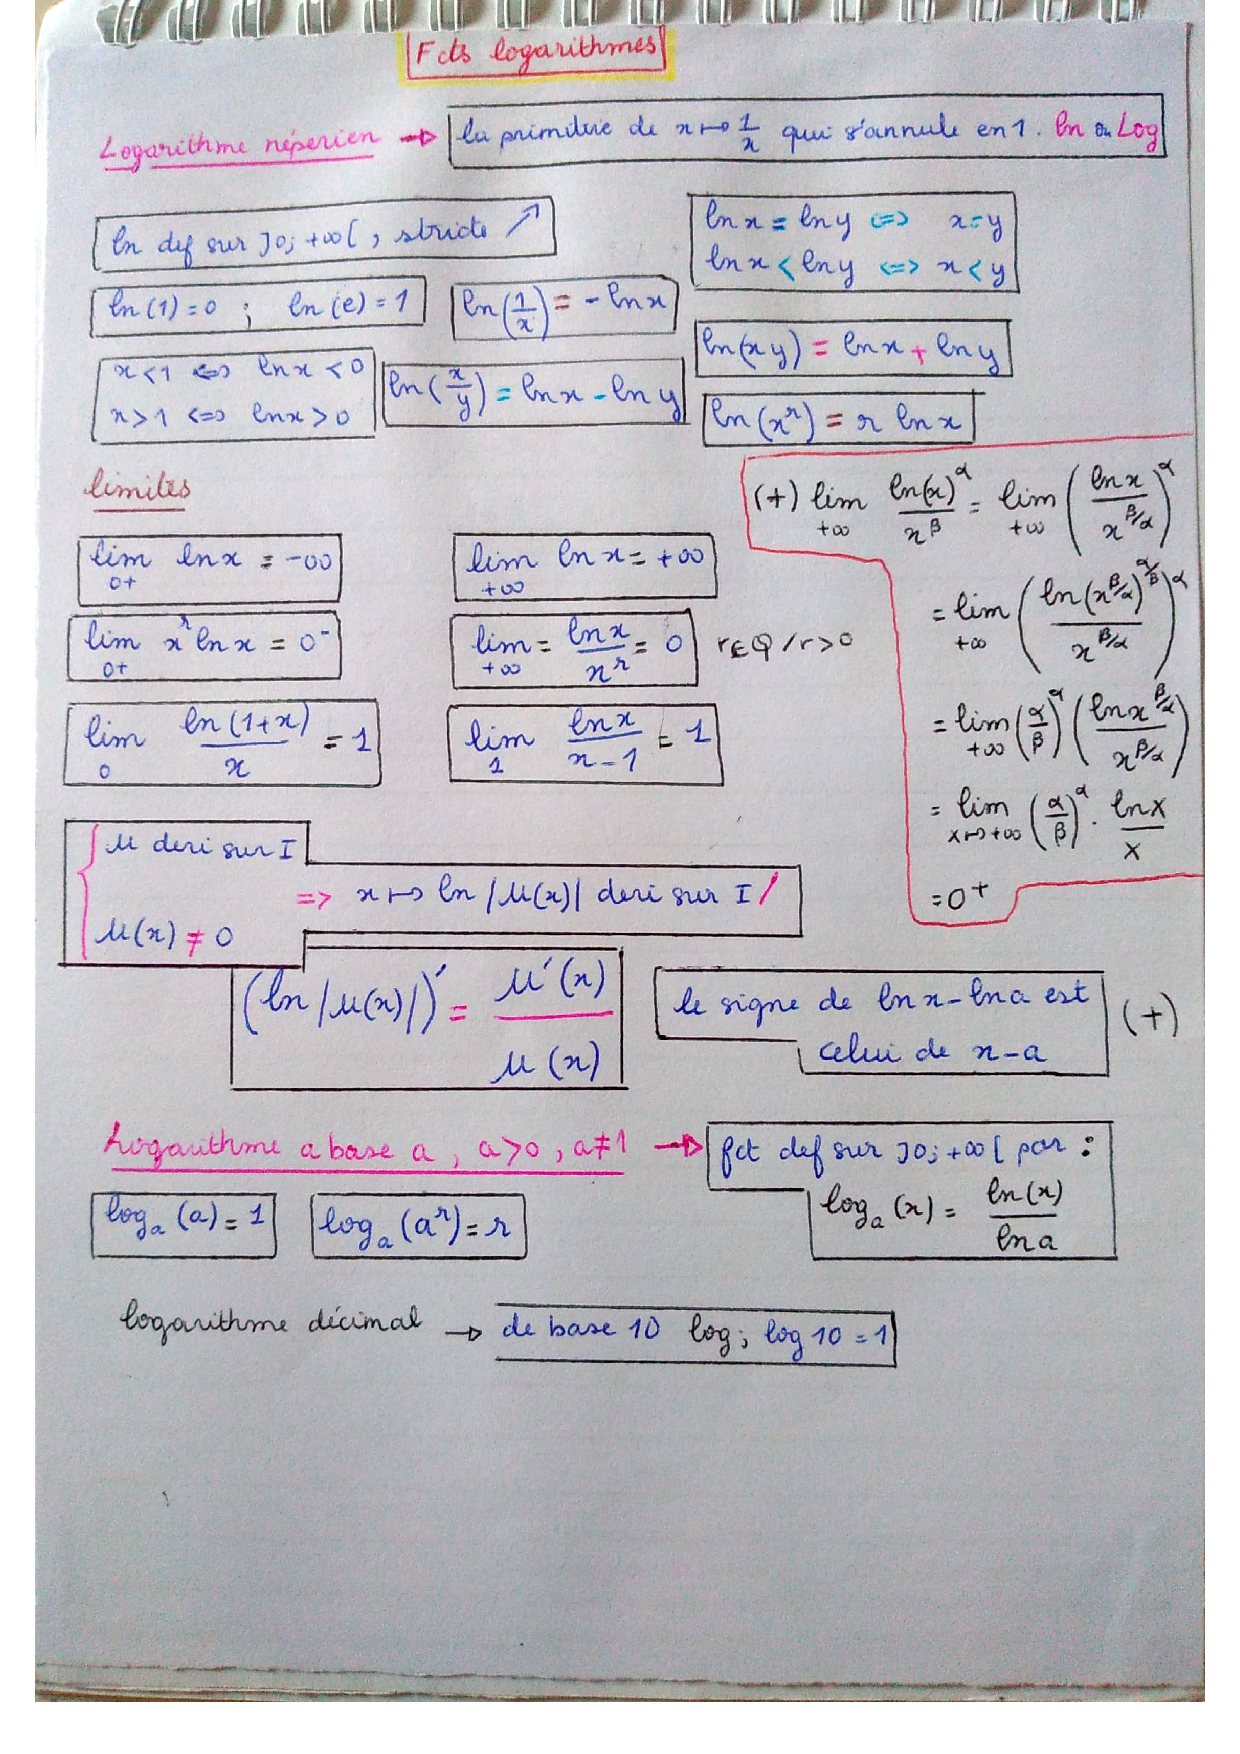 Fcts logarithmes
Logarithme néperien → la primitive de x ↦ 1/x qui s'annule en 1. ln ou Log
ln def sur ]0; +∞[, stricte ↗
ln x = ln y <=> x = y
ln x < ln y <=> x < y
ln(1) = 0 ; ln(e) = 1
ln(1/x) = - ln x
ln(xy) = ln x + ln y
x < 1 <=> ln x < 0
x > 1 <=> ln x > 0
ln(x/y) = ln x - ln y
ln(x^r) = r ln x
limites
lim 0+ ln x = -∞
lim +∞ ln x = +∞
lim 0+ x^r ln x = 0^-
lim +∞ = ln x / x^r = 0 r ∈ Q / r > 0
lim 0 ln(1+x) / x = 1
lim 1 ln x / x-1 = 1
(+) lim +∞ ln(x)^α / x^β = lim +∞ (ln x / x^(β/α))^α
= lim +∞ (ln(x^(β/α))^(α/β) / x^(β/α))^α
= lim +∞ (α/β)^α (ln x^(β/α) / x^(β/α))
= lim X↦+∞ (α/β)^α . ln X / X
= 0^+
{ u deri sur I
u(x) ≠ 0
=> x ↦ ln |u(x)| deri sur I /
(ln |u(x)|)' = u'(x) / u(x)
le signe de ln x - ln a est
celui de x - a
(+)
Logarithme a base a, a>0, a≠1 → fct def sur ]0; +∞[ par :
log_a(x) = ln(x) / ln a
log_a(a) = 1
log_a(a^r) = r
logarithme décimal → de base 10 log; log 10 = 1